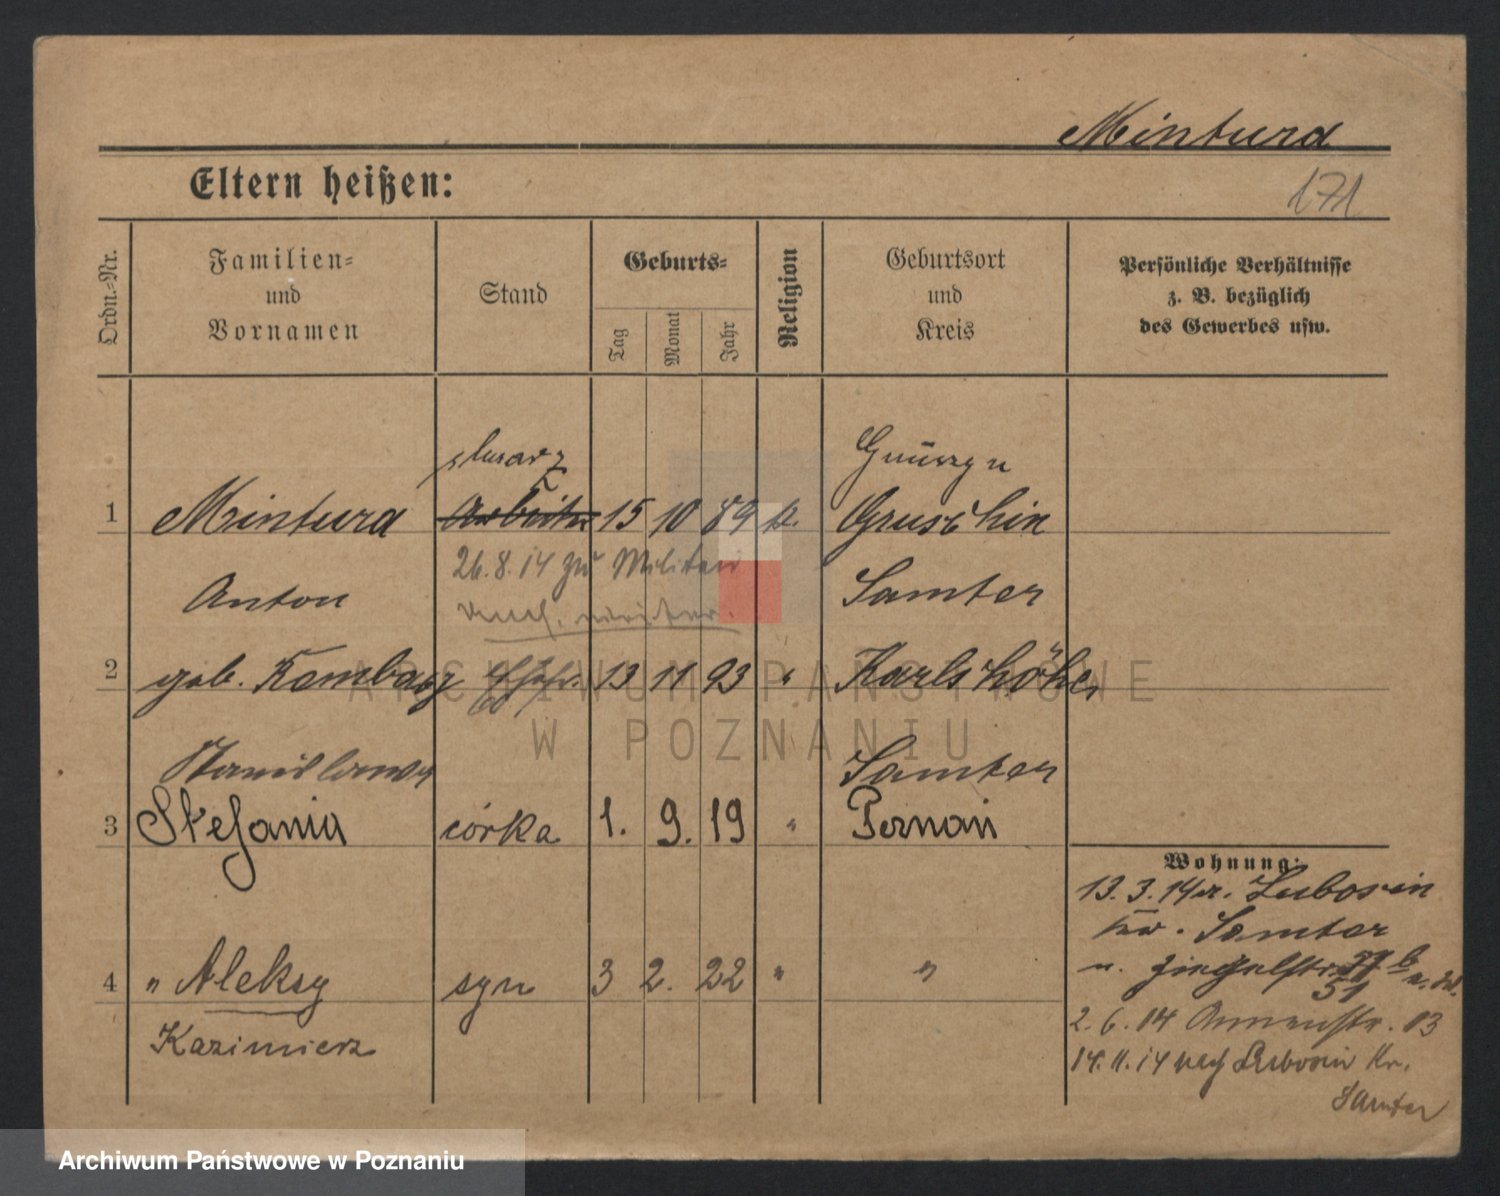 Minturd
Eltern heißen:
171
Ordn.-Nr.
Familien-
und
Vornamen
Stand
Geburts-
Tag
Monat
Jahr
Religion
Geburtsort
und
Kreis
Persönliche Verhältnisse
z. B. bezüglich
des Gewerbes usw.
slusarz
1 Minturd Arbeiter 15 10 89 k. Gruschin
26.8.14 zu Militair
Anton Samter
2 geb. Kambarz Ehefr. 13 11 93 " Karlshöhe
ARCHIWUM PAŃSTWOWE
W POZNANIU
Stanislawa Samter
3 Stefania córka 1. 9. 19 " Poznań
Wohnung:
13.3.14 Lubosin
Samter
u. Ziegelstr.
51
4 " Aleksy syn 3 2. 22 " "
Kazimierz
2.6.14 Annenstr. 13
14.11.14 nach Lubosin Kr.
Samter
Archiwum Państwowe w Poznaniu